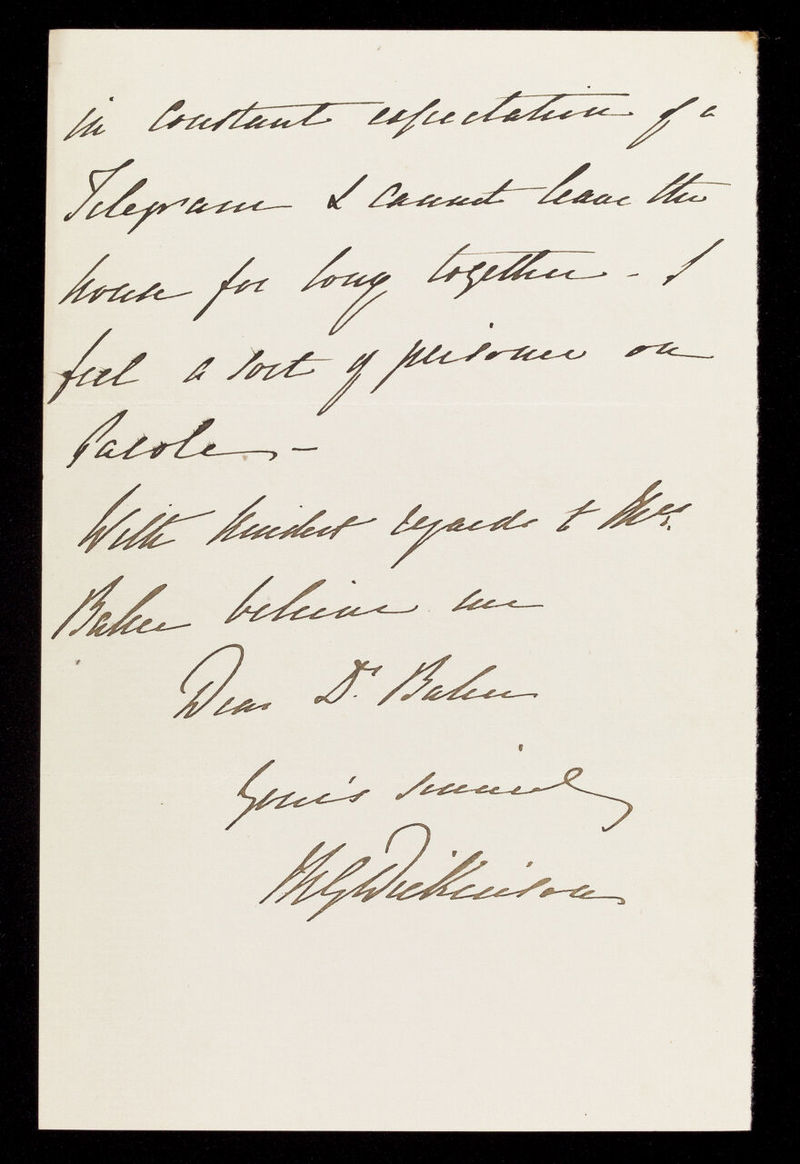 in constant expectation of a
Telegram & cannot leave the
house for long together - I
feel a sort of prisoner on
Parole -
With kindest regards to Mrs.
Baker believe me
Dear Dr. Baker
Yours sincerely
Dickinson